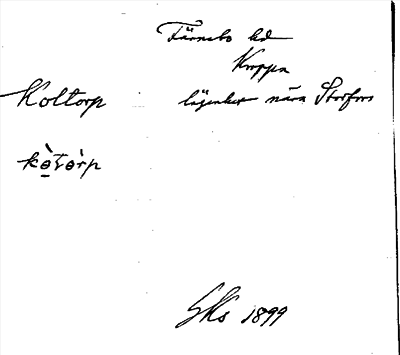 Färnebo hd
Kroppa
Koltorp lägenhet nära Storfors
kòtò̀rp
SKs 1899